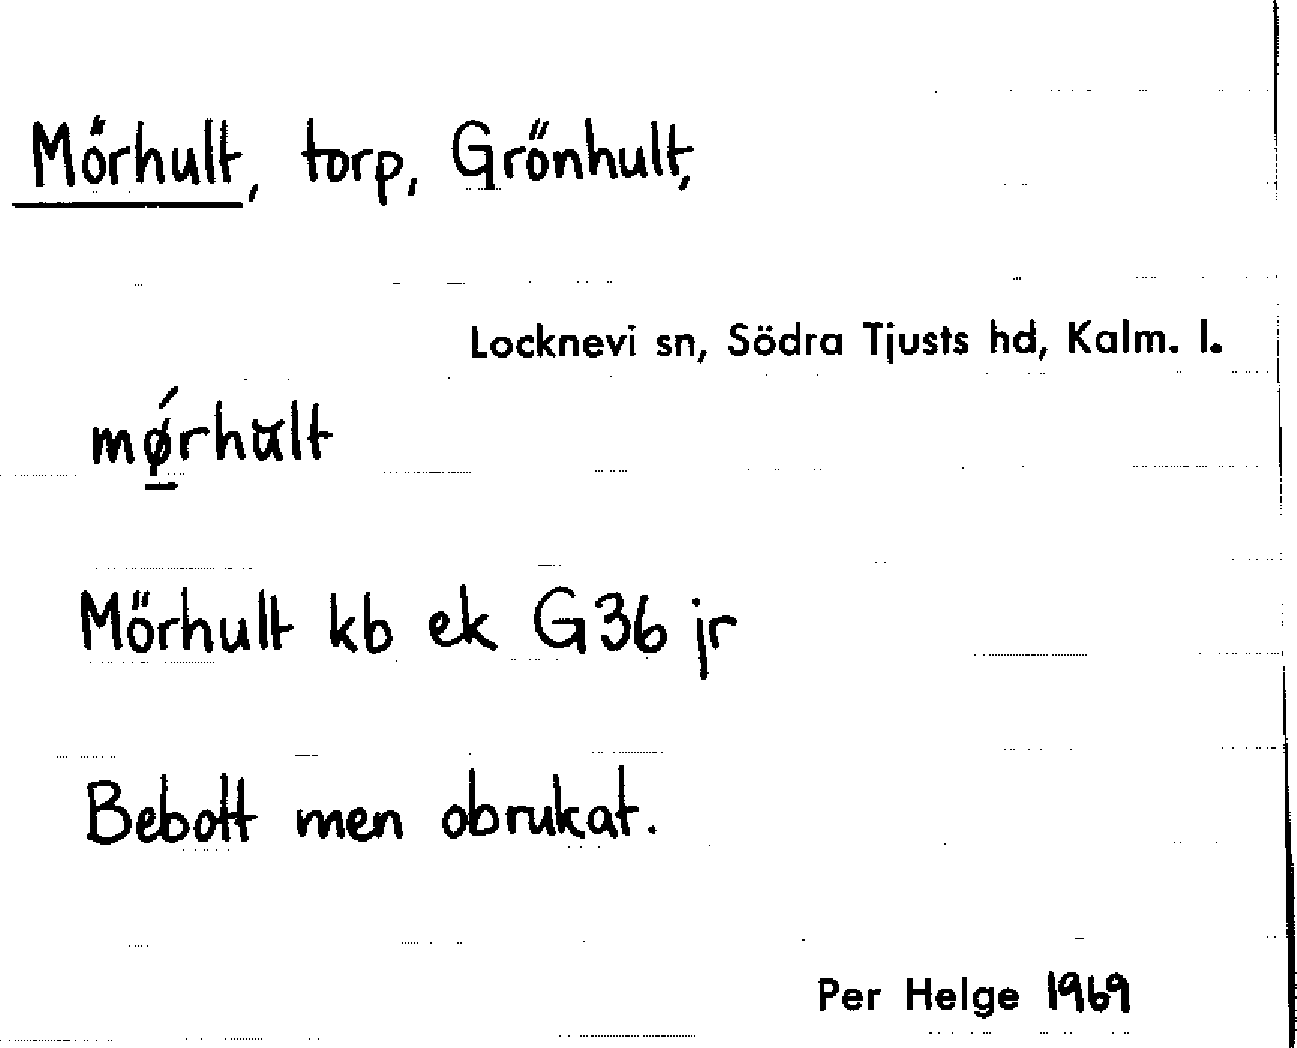 Mörhult, torp, Grönhult,
Locknevi sn, Södra Tjusts hd, Kalm. l.
mǿ̱rhŭlt
Mörhult kb ek G36 jr
Bebott men obrukat.
Per Helge 1969